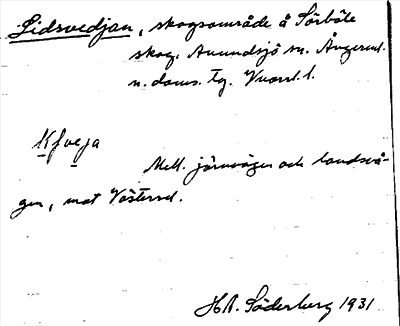 Lidsvedjan, skogsområde å Sörböle
skog, Anundsjö sn. Ångerml.
n. doms. tg.
Mell. järnvägen och landsvä-
gen, mot Västersel.
H.A. Söderberg 1931